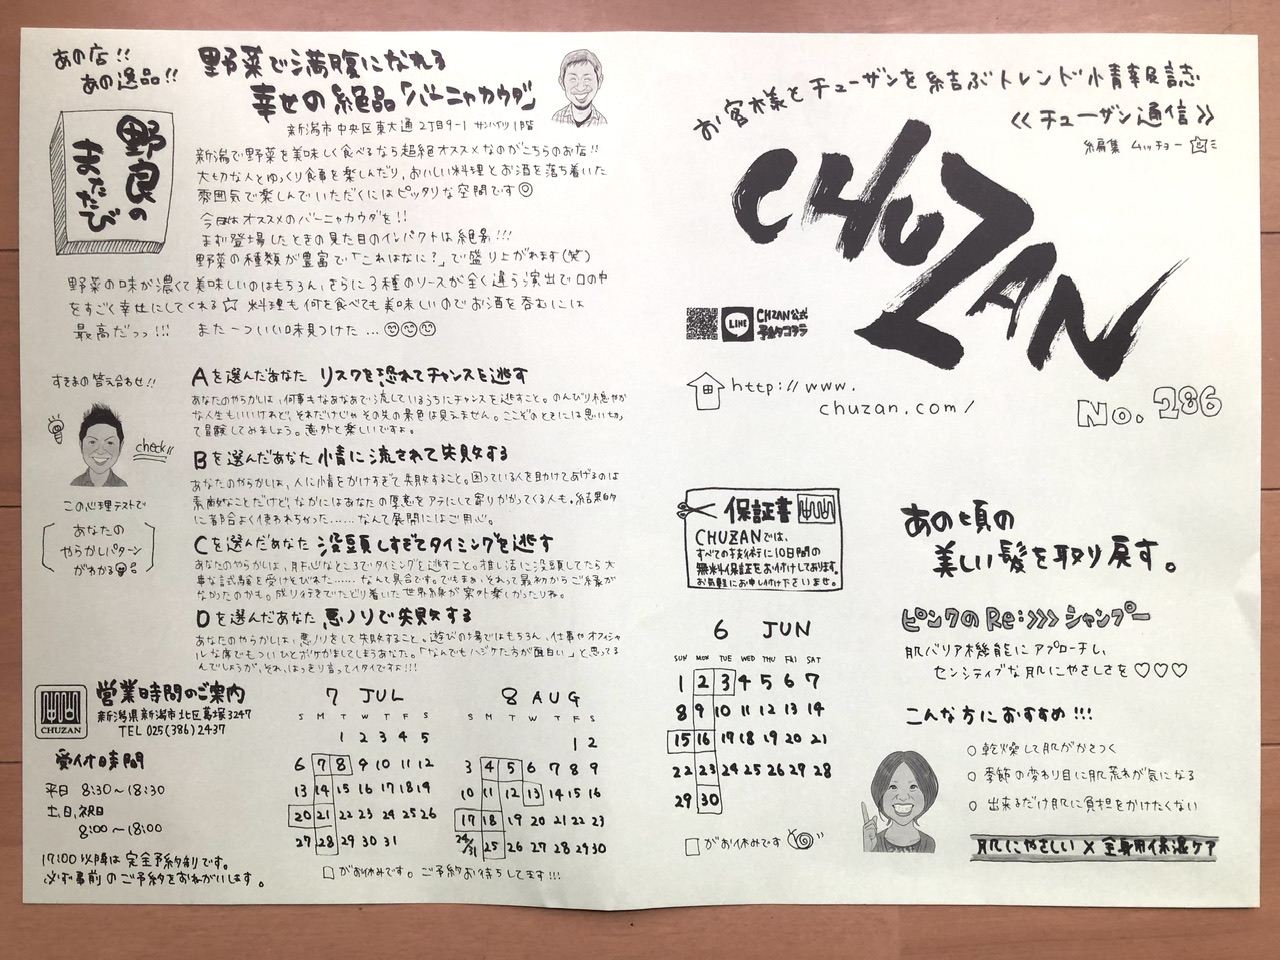 あの店!!
あの逸品!!
野良の
またたび
野菜で満腹になれる
幸せの絶品「バーニャカウダ」
新潟市中央区東大通2丁目9-1 サンハイツ1階
新潟で野菜を美味しく食べるなら超絶オススメなのがこちらのお店!!
大切な人とゆっくり食事を楽しんだり、おいしい料理とお酒を落ち着いた
雰囲気で楽しんでいただくにはピッタリな空間です
今日はオススメのバーニャカウダを!!
まず登場したときの見た目のインパクトは絶景!!!
野菜の種類が豊富で「これはなに?」で盛り上がれます(笑)
野菜の味が濃くて美味しいのはもちろん、さらに3種のソースが全く違う演出で口の中
をすごく幸せにしてくれる☆ 料理も何を食べても美味しいのでお酒を呑むには
最高だっっ!!! また一ついい味見つけた…
すきまの答え合わせ!!
check!!
この心理テストで
あなたの
やらかしパターン
がわかる
Aを選んだあなた リスクを恐れてチャンスを逃す
あなたのやらかしは、何事もなあなあで流しているうちにチャンスを逃すこと。のんびり穏やか
な人生もいいけれど、それだけじゃその先の景色は見えません。ここぞのときには思い切っ
て冒険してみましょう。意外と楽しいですよ。
Bを選んだあなた 情に流されて失敗する
あなたのやらかしは、人に情をかけすぎて失敗すること。困っている人を助けてあげるのは
素敵なことだけど、なかにはあなたの厚意をアテにして寄りかかってくる人も。結果的
に都合よく使われちゃった……なんて展開にはご用心。
Cを選んだあなた 没頭しすぎてタイミングを逃す
あなたのやらかしは、肝心なところでタイミングを逃すこと。推し活に没頭してたら大
事な試験を受けそびれた……なんて具合です。でもまぁ、それって最初からご縁が
なかったのかも。成り行きでたどり着いた世界線が案外楽しかったりね。
Dを選んだあなた 悪ノリで失敗する
あなたのやらかしは、悪ノリをして失敗すること。遊びの場ではもちろん、仕事やオフィシャ
ルな席でもついひとボケかましてしまうあなた。「なんでもハジケた方が面白い」と思ってる
んでしょうが、それ、はっきり言ってイタイですよ!!!
CHUZAN
営業時間のご案内
新潟県新潟市北区葛塚3247
TEL 025(386)2437
受付時間
平日 8:30〜18:30
土,日,祝日
8:00〜18:00
17:00以降は完全予約制です。
必ず事前のご予約をおねがいします。
7 JUL
S M T W T F S
1 2 3 4 5
6 7 8 9 10 11 12
13 14 15 16 17 18 19
20 21 22 23 24 25 26
27 28 29 30 31
8 AUG
S M T W T F S
1 2
3 4 5 6 7 8 9
10 11 12 13 14 15 16
17 18 19 20 21 22 23
24/31 25 26 27 28 29 30
□がお休みです。ご予約お待ちしてます!!!
お客様とチューザンを結ぶトレンド情報誌
《チューザン通信》
編集 ムッチョー
CHUZAN
LINE
CHZAN公式
予約はコチラ
http://www.
chuzan.com/
No.286
保証書
CHUZANでは、
すべての技術に10日間の
無料保証をお付けしております。
お気軽にお申し付け下さいませ。
6 JUN
SUN MON TUE WED THU FRI SAT
1 2 3 4 5 6 7
8 9 10 11 12 13 14
15 16 17 18 19 20 21
22 23 24 25 26 27 28
29 30
□がお休みです
あの頃の
美しい髪を取り戻す。
ピンクのRe:>>>シャンプー
肌バリア機能にアプローチし、
センシティブな肌にやさしさを♡♡♡
こんな方におすすめ!!!
○ 乾燥して肌がかさつく
○ 季節の変わり目に肌荒れが気になる
○ 出来るだけ肌に負担をかけたくない
肌にやさしい×全身用保湿ケア